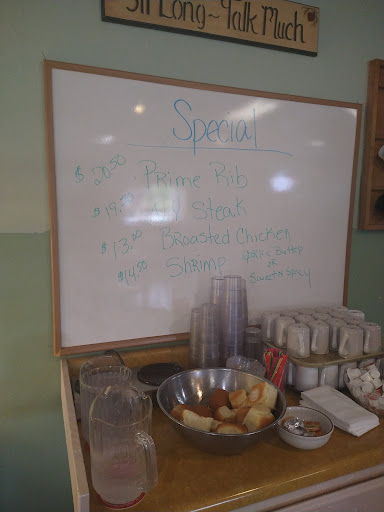 Sit Long~Talk Much
Special
$20.50 Prime Rib
$19. Steak
$13.50 Broasted Chicken
$14.50 Shrimp Garlic Butter
or
Sweet n Spicy